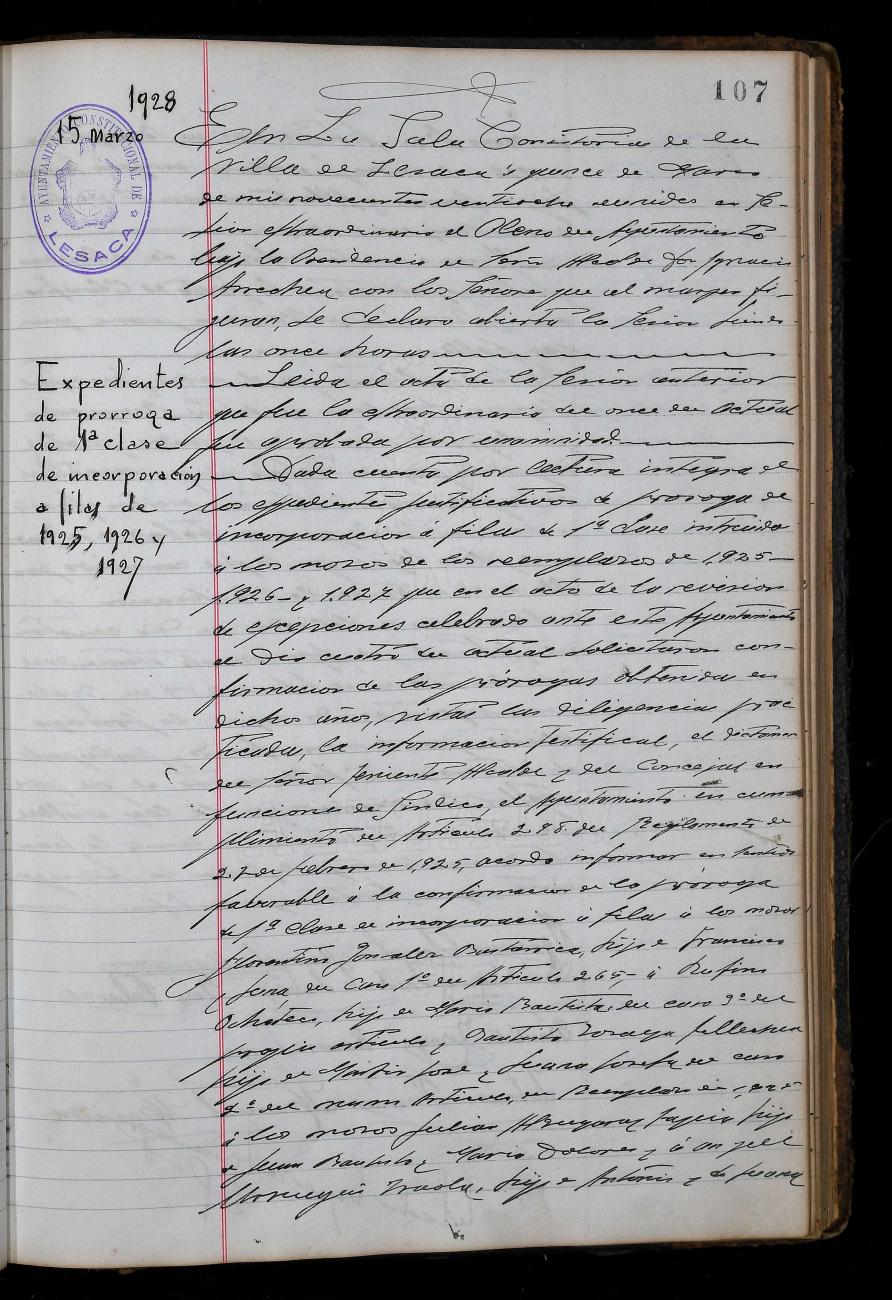 107
1928
15 Marzo
AYUNTAMIENTO CONSTITUCIONAL DE
LESACA
En La Sala Consistorial de la
Villa de Lesaca á quince de Marzo
de mil novecientos veintiocho reunidos en Se-
sion extraordinaria el Pleno del Ayuntamiento
bajo la Presidencia del Señor Alcalde Don Ignacio
Arrechea con los Señores que al margen fi-
guran, se declaro abierta la sesion siendo
las once horas
Expedientes
de prorroga
de 1ª clase
de incorporación
a filas de
1925, 1926 y
1927
Leida el acta de la sesion anterior
que fue la extraordinaria del once del actual
fue aprobada por unanimidad
Dada cuenta por lectura integra de
los expedientes justificativos de proroga de
incorporacion á filas de 1ª clase instruidos
á los mozos de los reemplazos de 1,925-
1,926- y 1,927 que en el acto de la revision
de excepciones celebrado ante este Ayuntamiento
el dia cuatro del actual solicitaron con-
firmacion de las prórogas obtenidas en
dichos años, vistas las diligencias prac
ticadas, la informacion testifical, el dictamen
del señor Teniente Alcalde y del Concejal en
funciones de Sindico, el Ayuntamiento en cum
plimiento del Articulo 298 del Reglamento de
27 de febrero de 1,925, acordo informar en sentido
favorable á la confirmacion de la próroga
de 1ª clase de incorporacion á filas á los mozos
Florentin Gonzalez hijo de Francisco
y del caso 1º del Articulo 265,- á Rufino
Ochoteco, hijo de Maria Bautista, del caso del
propio articulo y Bautista
hijo de Martin José y Juana Josefa, del caso
del mismo Articulo, del Reemplazo de 1,925
á los mozos Julian hijo
de Juan Bautista y Maria Dolores y á Angel
hijo de Antonio y de Juana